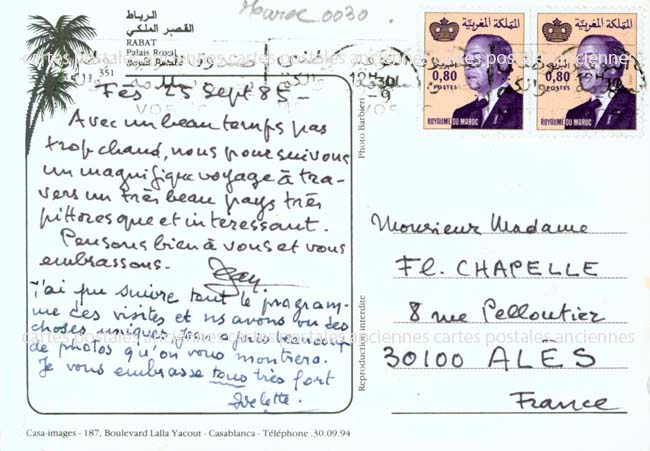 Maroc 0030
الرباط
القصر الملكي
RABAT
Palais Royal
Royal Palace
351
Fès 25 Sept 85 -
Avec un beau temps pas
trop chaud, nous poursuivons
un magnifique voyage à tra-
vers un très beau pays très
pittoresque et interessant.
Pensons bien à vous et vous
embrassons.
J'ai pu suivre tout le program-
me des visites et ns avons vu des
choses uniques
de photos qu'on vous montrera.
Je vous embrasse tous très fort
Casa-images - 187, Boulevard Lalla Yacout - Casablanca - Téléphone .30.09.94
Photo Barbieri
Reproduction interdite
12H 30
-9
المملكة المغربية
البريد
0,80
POSTES
ROYAUME DU MAROC
المملكة المغربية
البريد
0,80
POSTES
ROYAUME DU MAROC
12H 30
Monsieur Madame
Fl. CHAPELLE
8 rue Pelloutier
30100 ALÈS
France
cartes postales anciennes cartes postales anciennes cartes postales anciennes
cartes postales anciennes cartes postales anciennes cartes postales anciennes